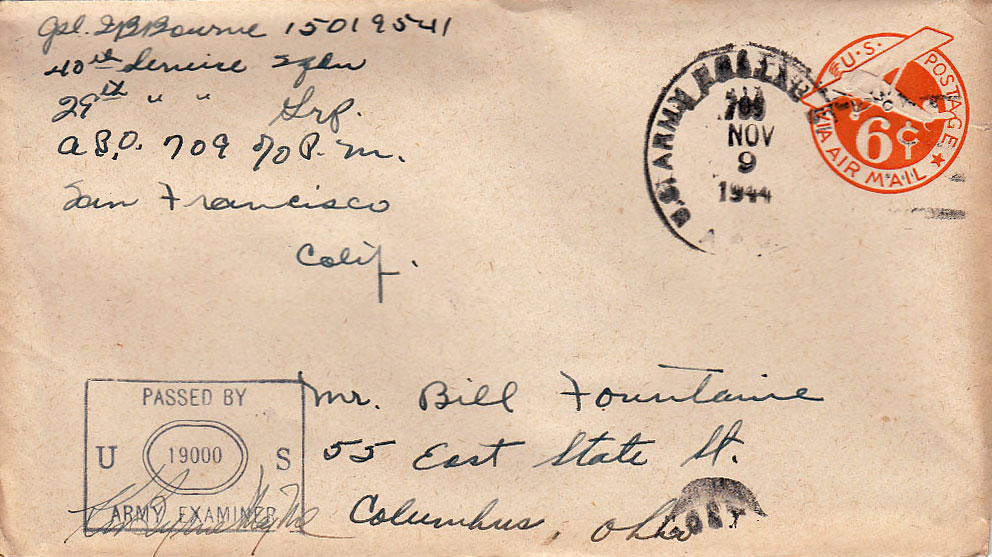 Cpl. I B Bourne 15019541
40th Service Sqdn
29th " " Grp.
A.P.O. 709 c/o P.M.
San Francisco
Calif.
U.S. ARMY POSTAL
709
NOV
9
1944
U.S. POSTAGE
6¢
VIA AIR MAIL
Mr. Bill Fountaine
55 East State St.
Columbus, Ohio
PASSED BY
U 19000 S
ARMY EXAMINER